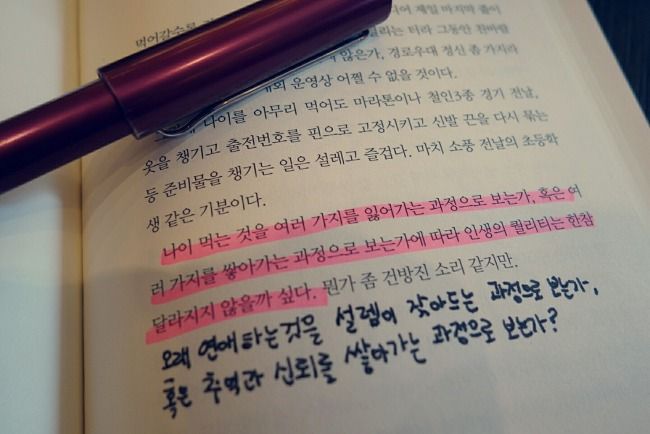 먹어갈수록
제일 마지막 줄이
리는 터라 그동안 찬바람
않은가, 경로우대 정신 좀 가지라
운영상 어쩔 수 없을 것이다.
나이를 아무리 먹어도 마라톤이나 철인3종 경기 전날,
옷을 챙기고 출전번호를 핀으로 고정시키고 신발 끈을 다시 묶는
등 준비물을 챙기는 일은 설레고 즐겁다. 마치 소풍 전날의 초등학
생 같은 기분이다.
나이 먹는 것을 여러 가지를 잃어가는 과정으로 보는가, 혹은 여
러 가지를 쌓아가는 과정으로 보는가에 따라 인생의 퀄리티는 한참
달라지지 않을까 싶다. 뭔가 좀 건방진 소리 같지만.
오래 연애하는것을 설렘이 잦아드는 과정으로 보는가,
혹은 추억과 신뢰를 쌓아가는 과정으로 보는가?